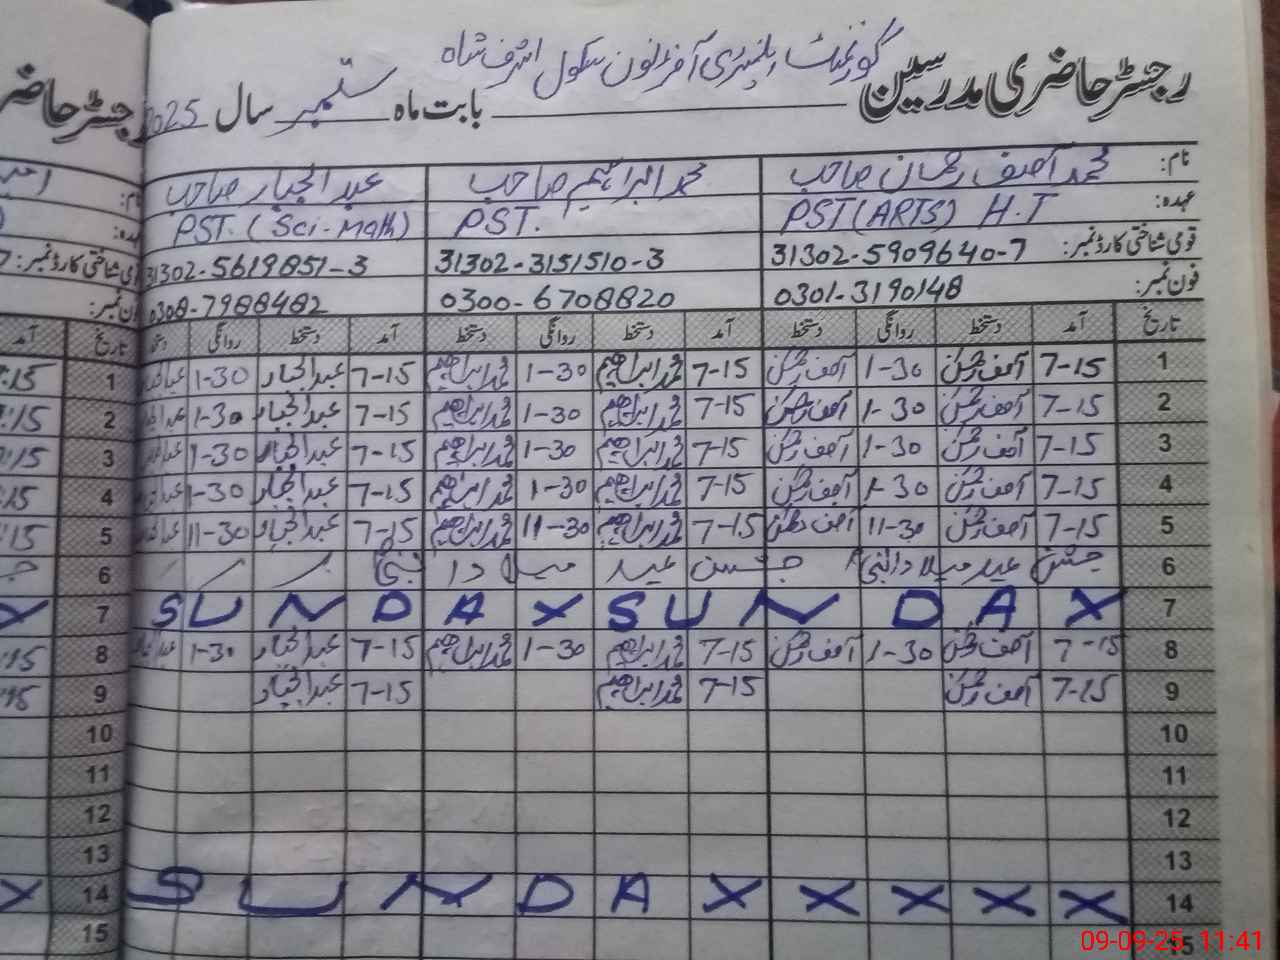 رجسٹر حاضری مدرسین گورنمنٹ ایلمنٹری آفٹرنون سکول اشرف شاہ بابت ماہ ستمبر سال 2025
نام: محمد آصف رحمان صاحب محمد ابراہیم صاحب عبدالجبار صاحب
عہدہ: PST (ARTS) H.T PST. PST. (Sci-Math)
قومی شناختی کارڈ نمبر: 31302-5909640-7 31302-3151510-3 31302-5619851-3
فون نمبر: 0301-3190148 0300-6708820 0308-7988482
تاریخ آمد دستخط روانگی دستخط آمد دستخط روانگی دستخط آمد دستخط روانگی دستخط تاریخ آمد
1 7-15 آصف رحمٰن 1-30 آصف رحمٰن 7-15 محمد ابراہیم 1-30 محمد ابراہیم 7-15 عبدالجبار 1-30 1
2 7-15 آصف رحمٰن 1-30 آصف رحمٰن 7-15 محمد ابراہیم 1-30 محمد ابراہیم 7-15 عبدالجبار 1-30 2
3 7-15 آصف رحمٰن 1-30 آصف رحمٰن 7-15 محمد ابراہیم 1-30 محمد ابراہیم 7-15 عبدالجبار 1-30 3
4 7-15 آصف رحمٰن 1-30 آصف رحمٰن 7-15 محمد ابراہیم 1-30 محمد ابراہیم 7-15 عبدالجبار 1-30 4
5 7-15 آصف رحمٰن 11-30 آصف رحمٰن 7-15 محمد ابراہیم 11-30 محمد ابراہیم 7-15 عبدالجبار 11-30 5
6 جشن عید میلادالنبی جشن عید میلادالنبی 6
7 SUNDAX SUNDAX 7
8 7-15 آصف رحمٰن 1-30 آصف رحمٰن 7-15 محمد ابراہیم 1-30 محمد ابراہیم 7-15 عبدالجبار 1-30 8
9 7-15 آصف رحمٰن 7-15 محمد ابراہیم 7-15 عبدالجبار 9
10 10
11 11
12 12
13 13
14 SUNDAXXXXX 14
15 15
09-09-25 11:41